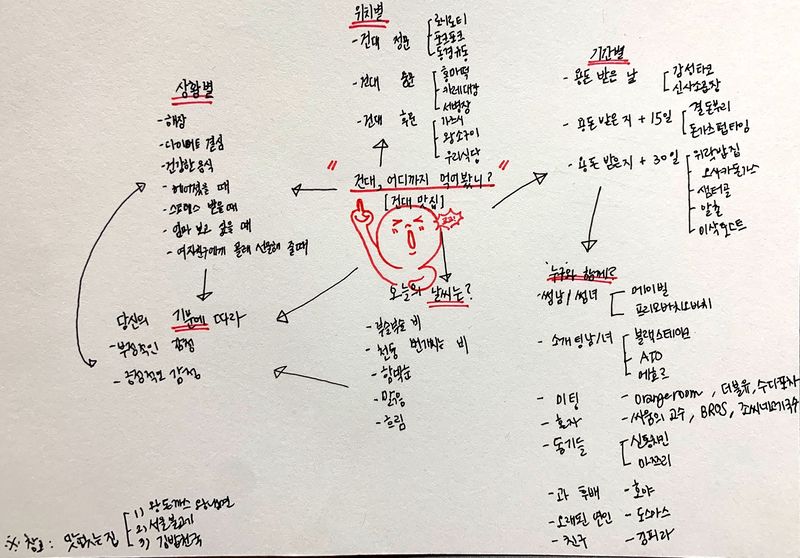 위치별
- 건대 정문
로니로티
폴크포크
동경규동
- 건대 중문
홍마떡
카레대장
서병장
- 건대 후문
가츠시
왕소구이
우리식당
기간별
- 용돈 받은 날
감성타코
신사소곱창
- 용돈 받은지 + 15일
결돈부리
돈가스텀타임
- 용돈 받은지 + 30일
위락밥집
오사카돈가스
샘터골
알촌
이삭토스트
상황별
- 해장
- 다이어트 결심
- 건강한 음식
- 헤어졌을 때
- 스트레스 받을 때
- 엄마 보고 싶을 때
- 여자친구에게 몰래 선물해 줄 때
" 건대, 어디까지 먹어봤니? "
[건대 맛집]
꼬끼오!
당신의 기분에 따라
- 부정적인 감정
- 긍정적인 감정
오늘의 날씨는?
- 부슬부슬 비
- 천둥 번개치는 비
- 함박눈
- 맑음
- 흐림
누구와 함께?
- 썸남/썸녀
메이빌
프리모바치오바치
- 소개팅남/녀
블랙스테이크
ATO
에흐르
- 미팅 - Orangeroom, 더블유, 수다포차
- 혼자 - 싸움의 고수, BROS, 조씨네고기국수
- 동기들
신통치킨
마쯔리
- 과 후배 - 호야
- 오래된 연인 - 도스마스
- 친구 - 김피라
※ 참고: 맛없는 집
1) 왕돈까스 왕냉면
2) 서울불고기
3) 김밥천국